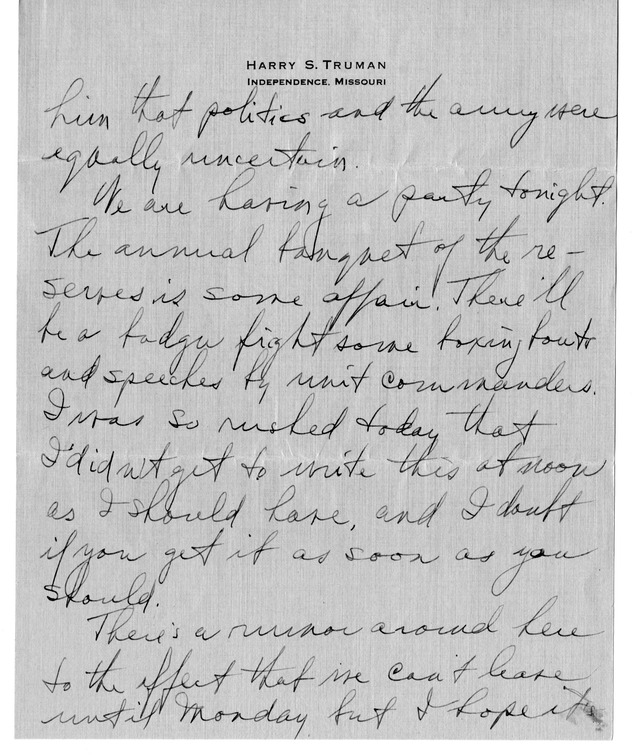 HARRY S. TRUMAN
INDEPENDENCE, MISSOURI
him that politics and the army were
equally uncertain.
We are having a party tonight.
The annual banquet of the re-
serves is some affair. There'll
be a badger fight some boxing bouts
and speeches by unit commanders.
I was so rushed today that
I didn't get to write this at noon
as I should have, and I doubt
if you get it as soon as you
should.
There's a rumor around here
to the effect that we can't leave
until Monday but I hope it's